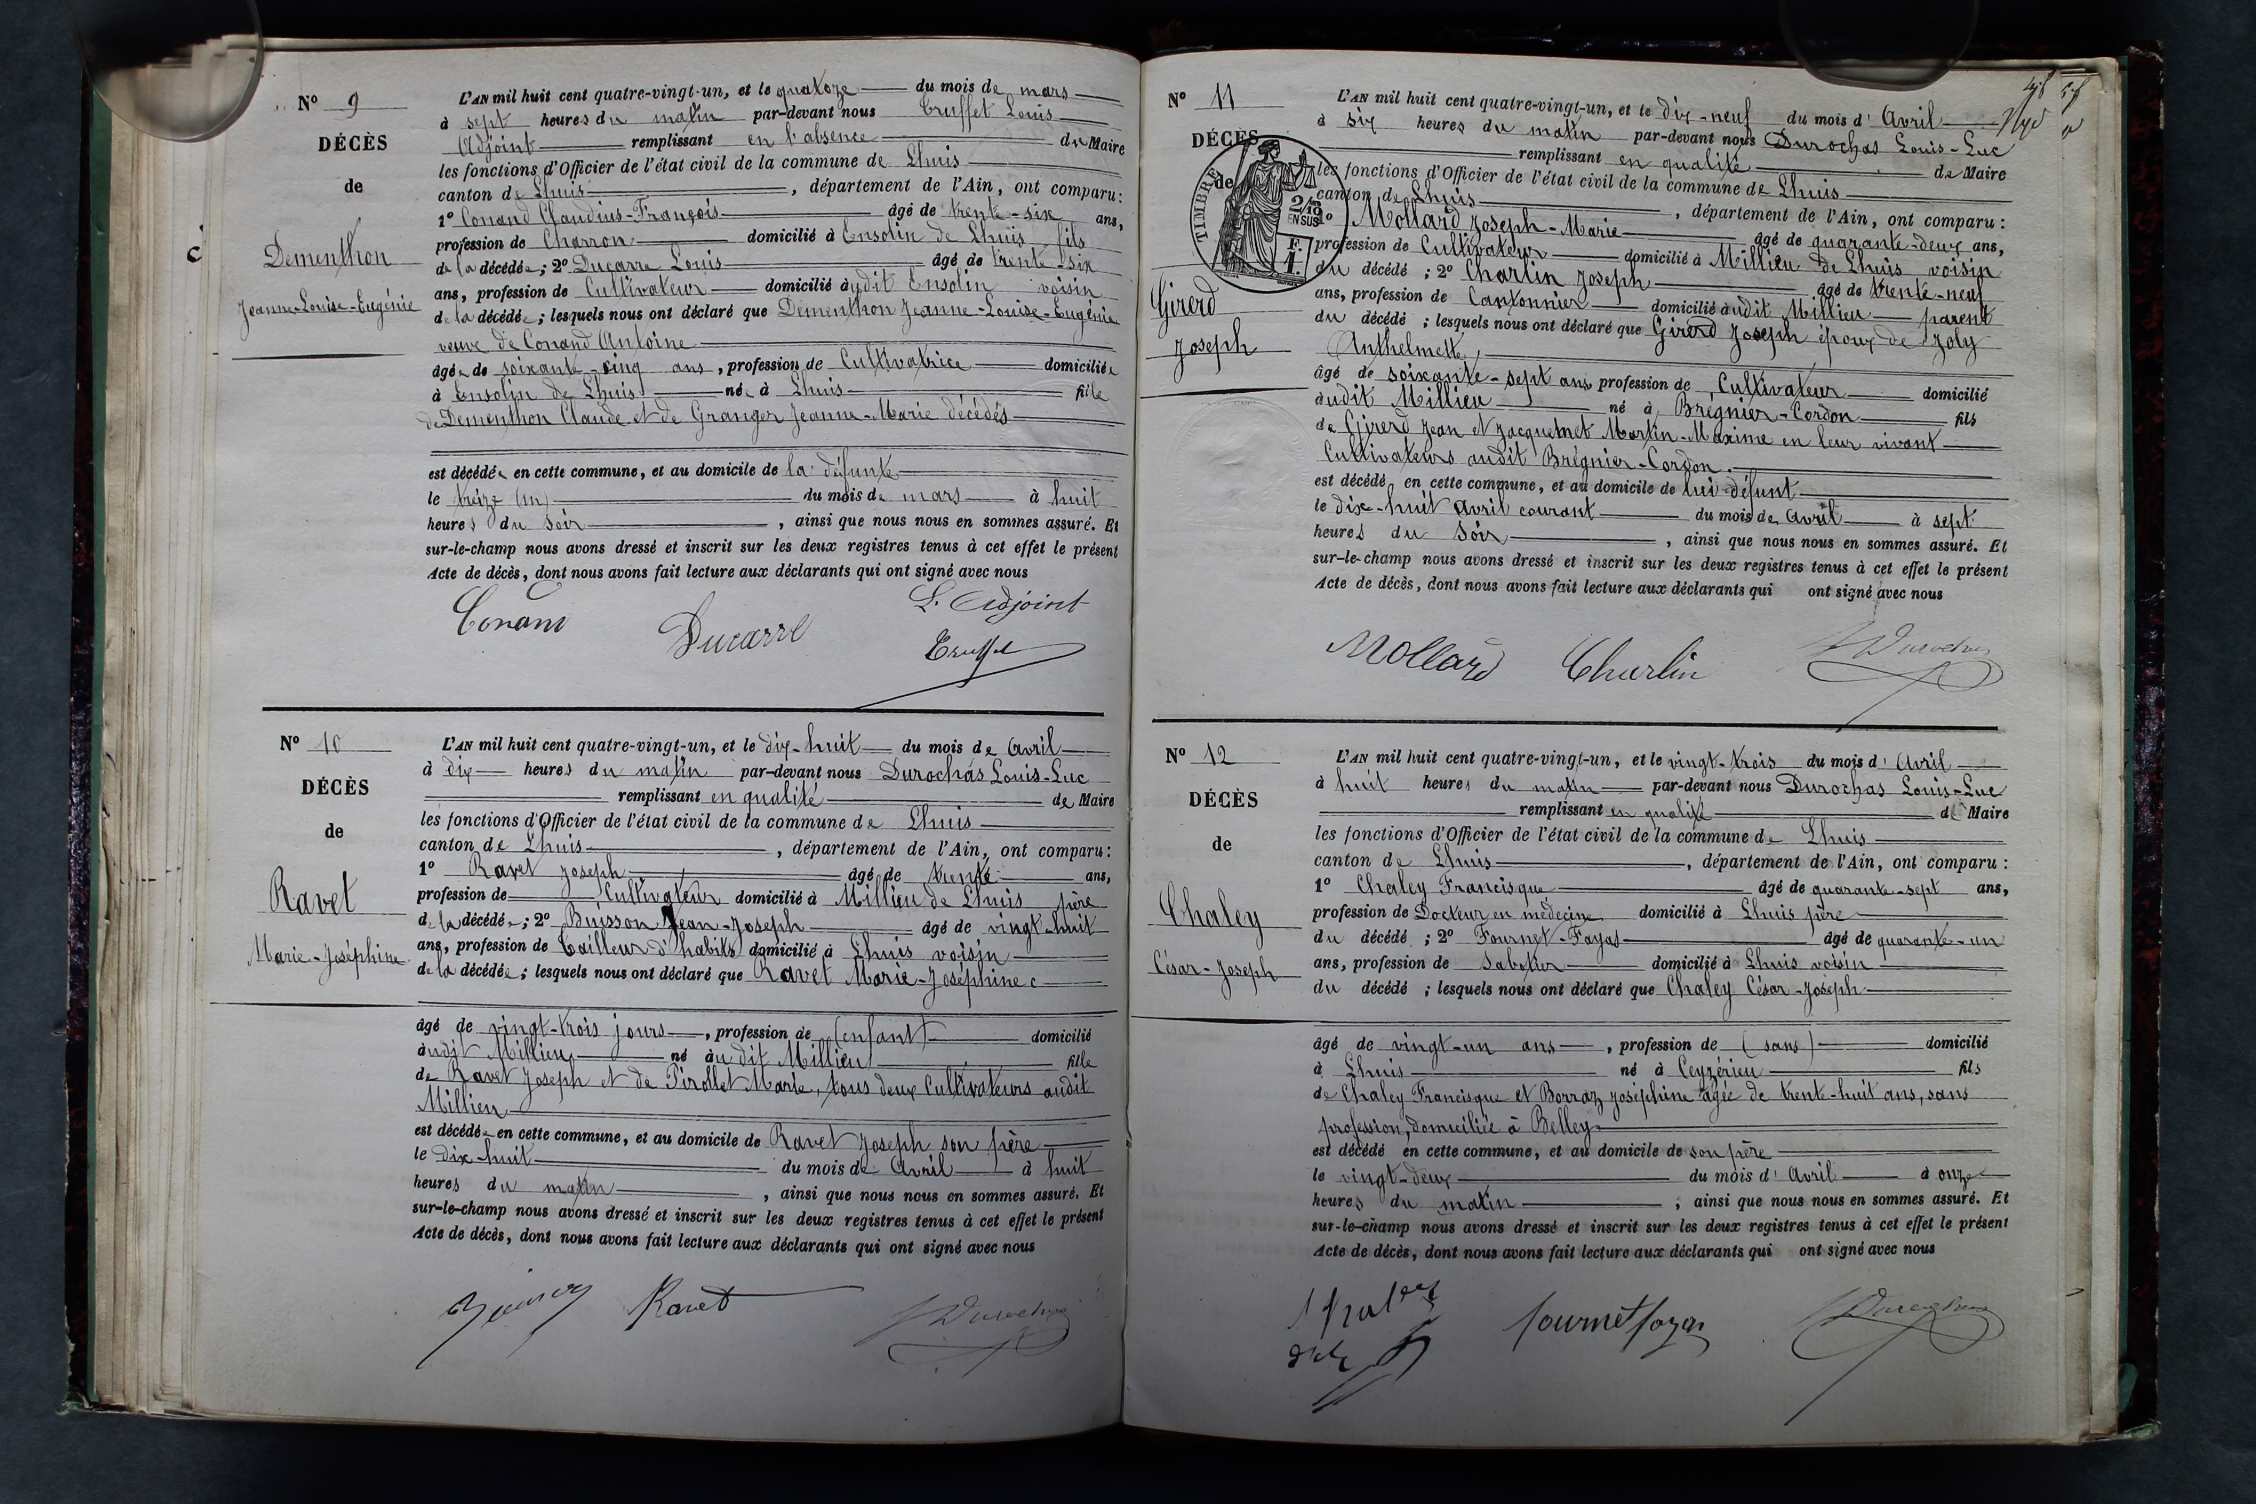 N° 9
DÉCÈS
de
Dementhon
Jeanne-Louise-Eugénie
L'AN mil huit cent quatre-vingt-un, et le quatoze du mois de mars
à sept heures du matin par-devant nous Truffet Louis
Adjoint remplissant en l'absence du Maire
les fonctions d'Officier de l'état civil de la commune de Lhuis
canton de Lhuis, département de l'Ain, ont comparu:
1° Conand Claudius-François âgé de trente-six ans,
profession de Charron domicilié à Ensolin de Lhuis fils
de la décédée; 2° Ducarre Louis âgé de trente-six
ans, profession de Cultivateur domicilié audit Ensolin voisin
de la décédée; lesquels nous ont déclaré que Dementhon Jeanne-Louise-Eugénie
veuve de Conand Antoine
âgée de soixante-cinq ans, profession de Cultivatrice domiciliée
à Ensolin de Lhuis née à Lhuis fille
de Dementhon Claude et de Granger Jeanne-Marie décédés
est décédée en cette commune, et au domicile de la défunte
le treize (m) du mois de mars à huit
heures du soir, ainsi que nous nous en sommes assuré. Et
sur-le-champ nous avons dressé et inscrit sur les deux registres tenus à cet effet le présent
Acte de décès, dont nous avons fait lecture aux déclarants qui ont signé avec nous
Conand Ducarre L. Adjoint
Truffet
N° 10
DÉCÈS
de
Ravet
Marie-Joséphine
L'AN mil huit cent quatre-vingt-un, et le dix-huit du mois de Avril
à dix heures du matin par-devant nous Durochas Louis-Luc
remplissant en qualité de Maire
les fonctions d'Officier de l'état civil de la commune de Lhuis
canton de Lhuis, département de l'Ain, ont comparu:
1° Ravet Joseph âgé de trente ans,
profession de Cultivateur domicilié à Millieu de Lhuis père
de la décédée; 2° Buisson Jean-Joseph âgé de vingt-huit
ans, profession de Tailleur d'habits domicilié à Lhuis voisin
de la décédée; lesquels nous ont déclaré que Ravet Marie-Joséphine
âgé de vingt-trois jours, profession de (enfant) domicilié
audit Millieu né audit Millieu fille
de Ravet Joseph et de Pirollet Marie, tous deux Cultivateurs audit
Millieu
est décédée en cette commune, et au domicile de Ravet Joseph son père
le Dix-huit du mois de Avril à huit
heures du matin, ainsi que nous nous en sommes assuré. Et
sur-le-champ nous avons dressé et inscrit sur les deux registres tenus à cet effet le présent
Acte de décès, dont nous avons fait lecture aux déclarants qui ont signé avec nous
Ravet Durochas
N° 11
DÉCÈS
de
TIMBRE
2/10 EN SUS
F.
1.
Girerd
Joseph
L'AN mil huit cent quatre-vingt-un, et le dix-neuf du mois d'Avril
à six heures du matin par-devant nous Durochas Louis-Luc
remplissant en qualité de Maire
les fonctions d'Officier de l'état civil de la commune de Lhuis
canton de Lhuis, département de l'Ain, ont comparu:
1° Mollard Joseph-Marie âgé de quarante-deux ans,
profession de Cultivateur domicilié à Millieu de Lhuis voisin
du décédé; 2° Charlin Joseph âgé de trente-neuf
ans, profession de Cantonnier domicilié audit Millieu parent
du décédé; lesquels nous ont déclaré que Girerd Joseph époux de Joly
Anthelmette,
âgé de soixante-sept ans profession de Cultivateur domicilié
audit Millieu né à Brégnier-Cordon fils
de Girerd Jean et Jacquemet Martin-Maxime en leur vivant
Cultivateurs audit Brégnier-Cordon.
est décédé en cette commune, et au domicile de lui défunt
le dix-huit Avril courant du mois de Avril à sept
heures du Soir, ainsi que nous nous en sommes assuré. Et
sur-le-champ nous avons dressé et inscrit sur les deux registres tenus à cet effet le présent
Acte de décès, dont nous avons fait lecture aux déclarants qui ont signé avec nous
Mollard Charlin Durochas
N° 12
DÉCÈS
de
Chaley
César-Joseph
L'AN mil huit cent quatre-vingt-un, et le vingt-trois du mois d'Avril
à huit heures du matin par-devant nous Durochas Louis-Luc
remplissant en qualité de Maire
les fonctions d'Officier de l'état civil de la commune de Lhuis
canton de Lhuis, département de l'Ain, ont comparu:
1° Chaley Francisque âgé de quarante-sept ans,
profession de Docteur en médecine domicilié à Lhuis père
du décédé; 2° Fournet-Fayas âgé de quarante-un
ans, profession de Sabotier domicilié à Lhuis voisin
du décédé; lesquels nous ont déclaré que Chaley César-Joseph
âgé de vingt-un ans, profession de (sans) domicilié
à Lhuis né à Ceyzérieu fils
de Chaley Francisque et Borraz Joséphine âgée de trente-huit ans, sans
profession, domiciliée à Belley
est décédé en cette commune, et au domicile de son père
le vingt-deux du mois d'Avril à onze
heures du matin, ainsi que nous nous en sommes assuré. Et
sur-le-champ nous avons dressé et inscrit sur les deux registres tenus à cet effet le présent
Acte de décès, dont nous avons fait lecture aux déclarants qui ont signé avec nous
fournet fayas Durochas